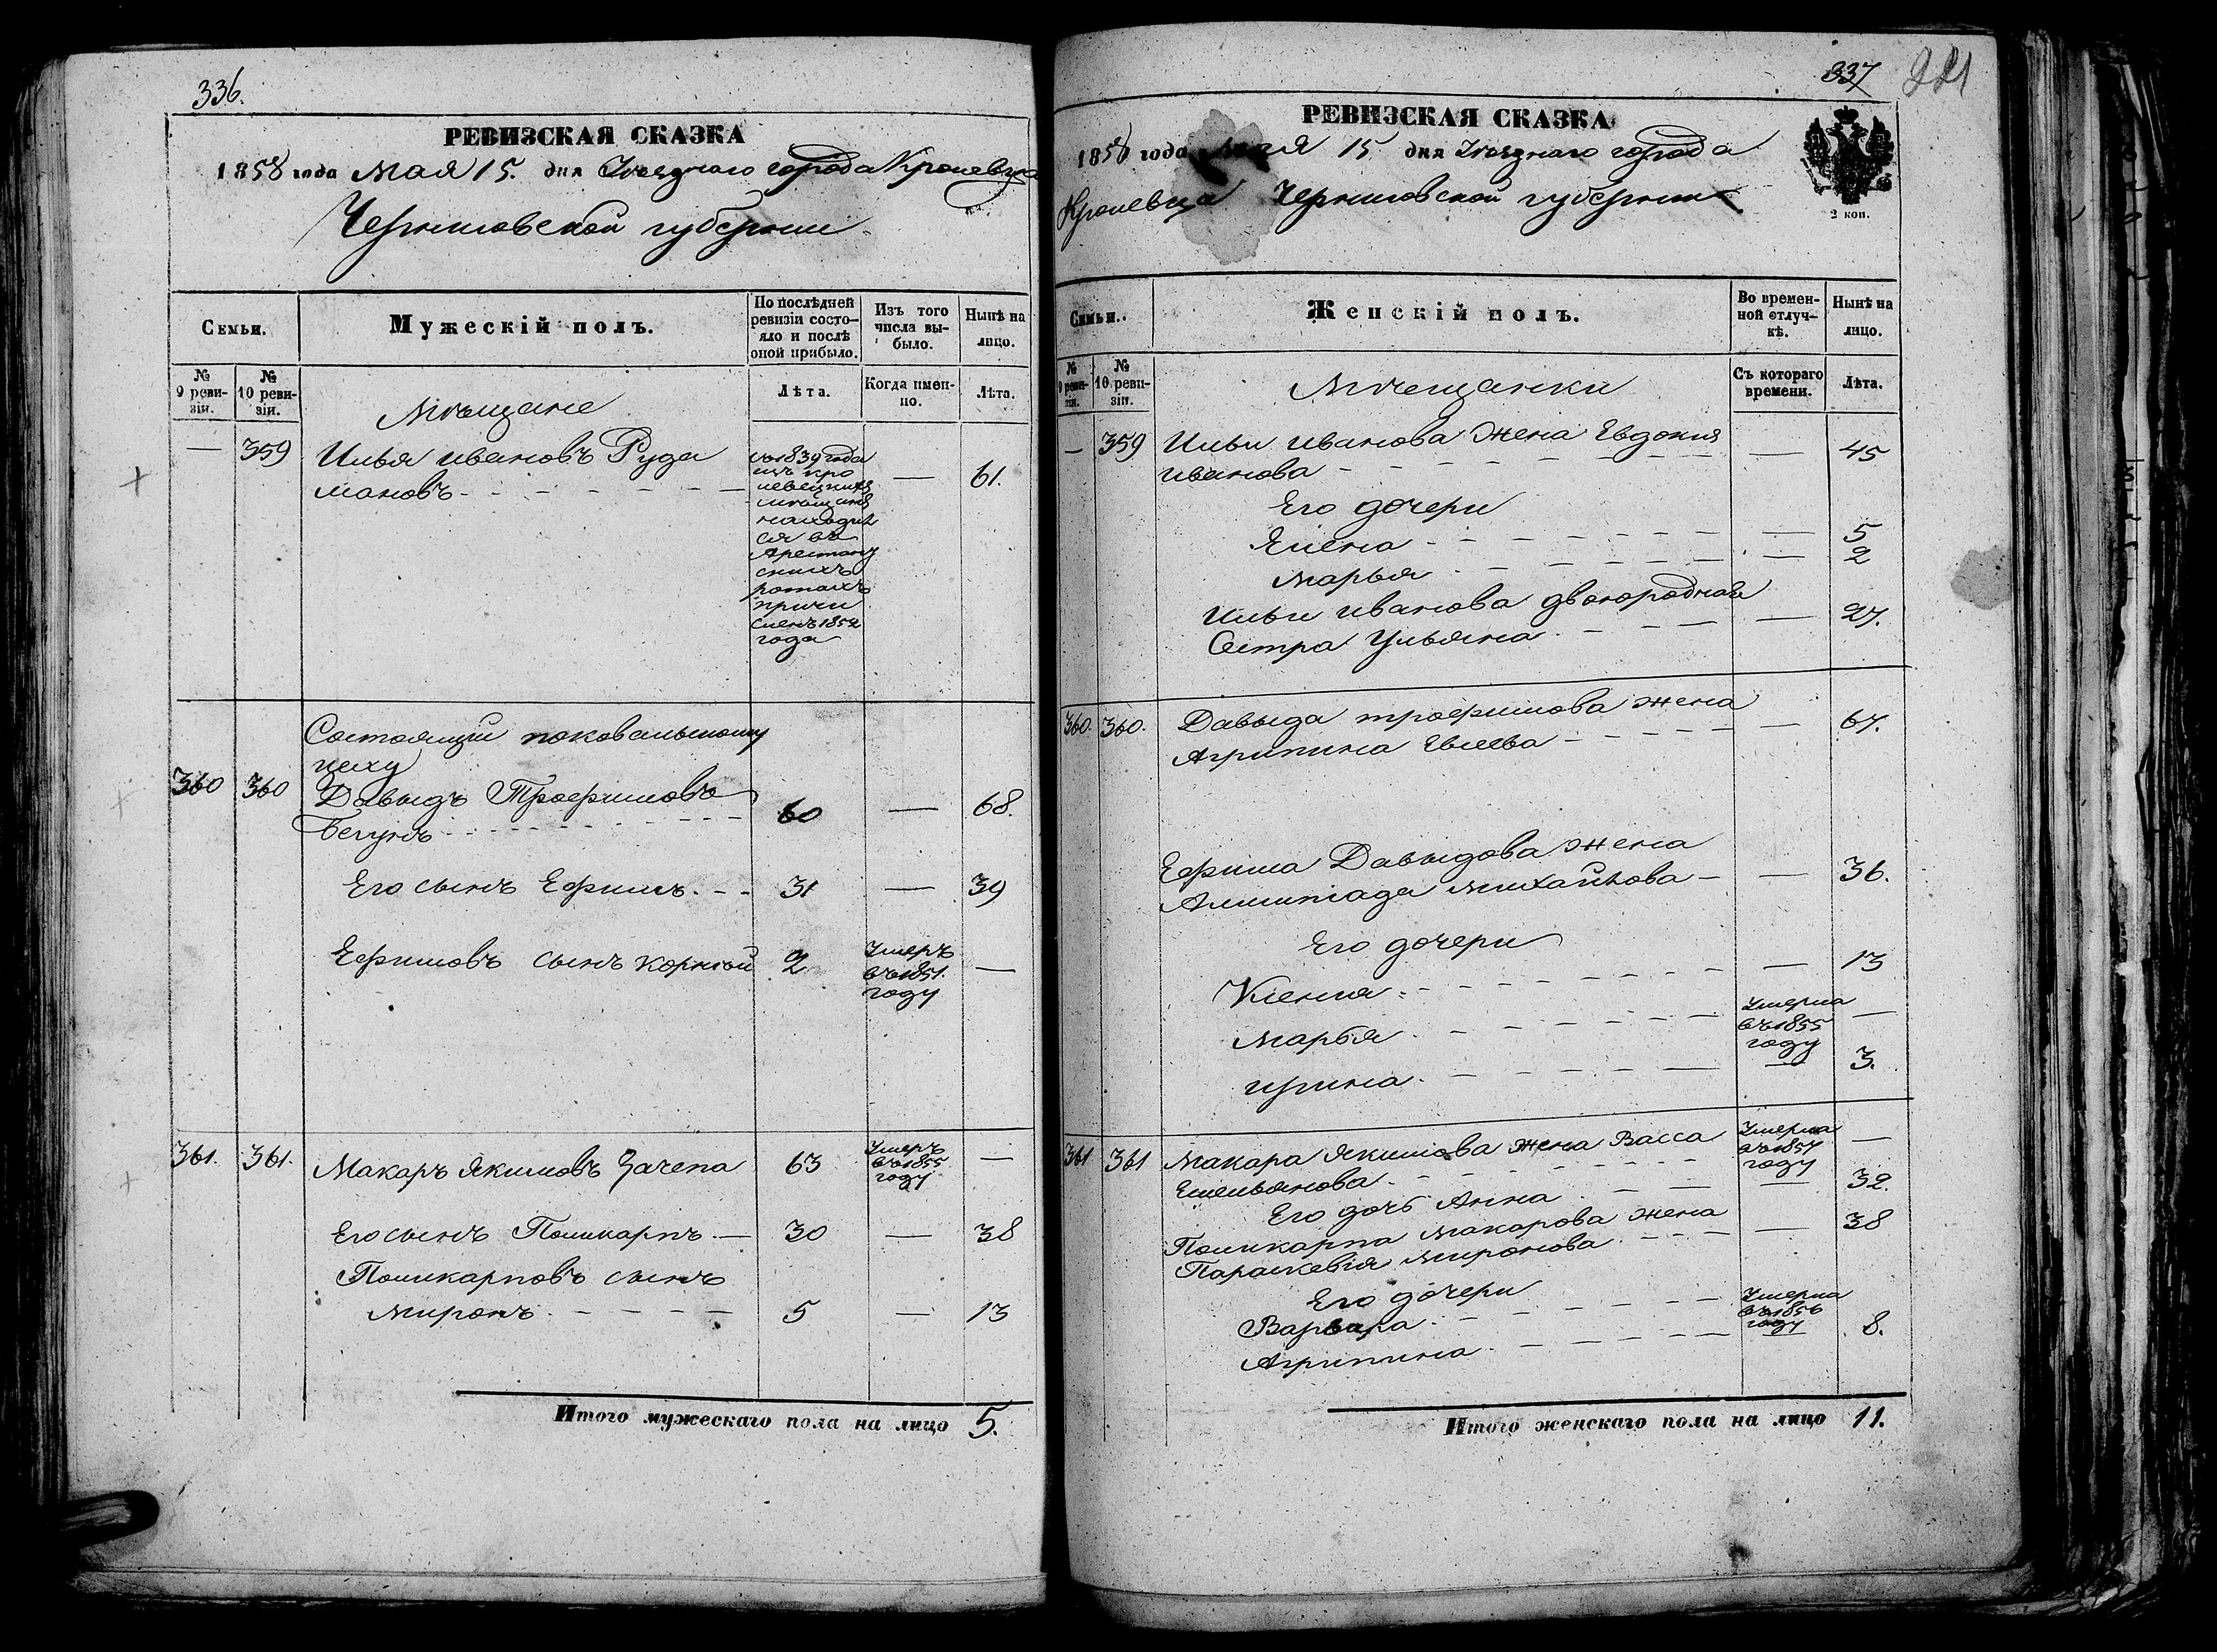 336.
РЕВИЗСКАЯ СКАЗКА
1858 года Мая 15. дня Уѣзднаго города Кролевца
Черниговской губерніи
Семьи.
Мужескій полъ.
По послѣдней ревизіи состояло и послѣ оной прибыло.
Изъ того числа выбыло.
Нынѣ на лицо.
№ 9 ревизіи.
№ 10 ревизіи.
Лѣта.
Когда именно.
Лѣта.
Мѣщане
— 359 Илья Ивановъ Руда
мановъ — 61.
съ 1839 года
изъ кро
левецкихъ
мѣщанъ
находит
ся въ
Арестант
скихъ
ротахъ
причи
сленъ 1852
года
Состоящій поковальскому
цеху
360 360 Давыдъ Трофимовъ
Бегунъ 60 — 68.
Его сынъ Ефимъ 31 — 39
Ефимовъ сынъ Корнѣй 2 Умеръ въ 1851. году —
361. 361. Макаръ Якимовъ Зачепа 63 Умеръ въ 1855 году —
Его сынъ Поликарпъ — 30 — 38
Поликарповъ сынъ
Миронъ 5 — 13
Итого мужескаго пола на лицо 5.
337
РЕВИЗСКАЯ СКАЗКА
1858 года Мая 15 дня Уѣзднаго города
Кролевца Черниговской губерніи
2 коп.
Семьи.
Женскій полъ.
Во временной отлучкѣ.
Нынѣ на лицо.
№ 9 ревизіи.
№ 10 ревизіи.
Съ котораго времени.
Лѣта.
Мѣщанки
— 359 Ильи Иванова жена Евдокия
Иванова — 45
Его дочери
Елена — 5
Марья — 2
Ильи Иванова двоюродная
Сестра Ульяна — 27.
360. 360. Давыда Трофимова жена
Агрипина Евсеева — 67.
Ефима Давыдова жена
Михайлова — 36.
Его дочери
Ксенія — 13
Марья Умерла въ 1855 году —
Ирина — 3.
361 361 Макара Якимова жена Васса
Емельянова Умерла въ 1857 году —
Его дочь Анна — 32.
Поликарпа Макарова жена
Параскевія Миронова — 38
Его дочери
Варвара Умерла въ 1856 году
Агрипина — 8.
Итого женскаго пола на лицо 11.